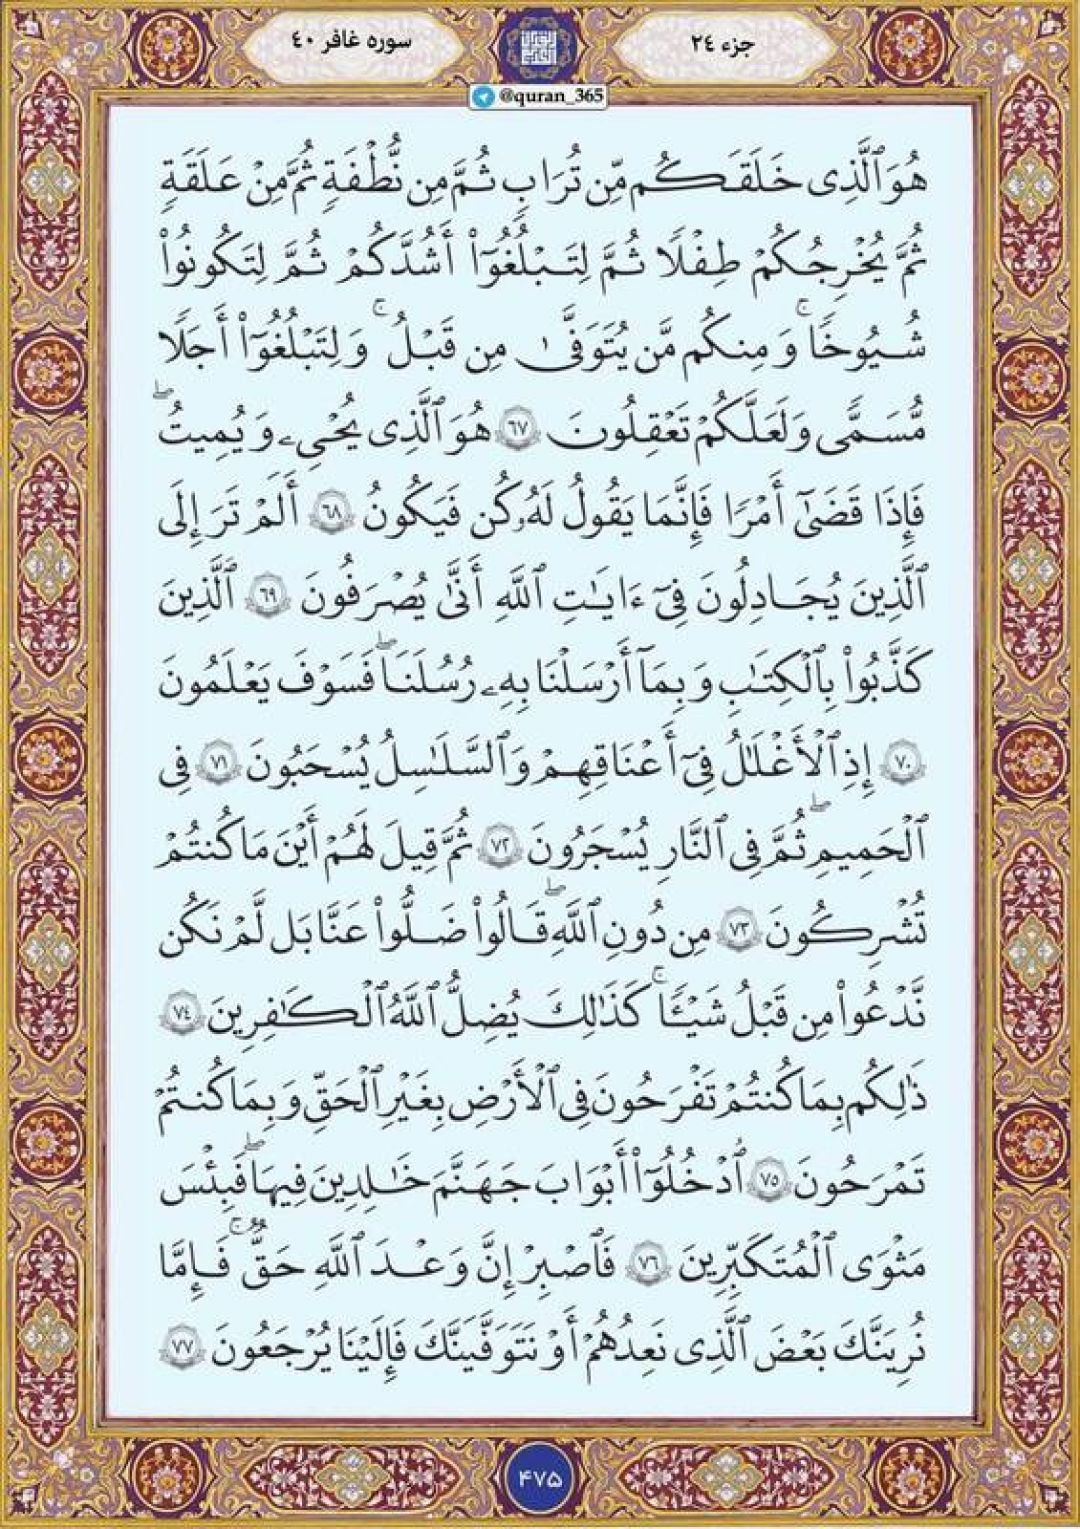 جزء ٢٤
سوره غافر ٤٠
@quran_365
هُوَ ٱلَّذِى خَلَقَكُم مِّن تُرَابٍ ثُمَّ مِن نُّطْفَةٍ ثُمَّ مِنْ عَلَقَةٍ
ثُمَّ يُخْرِجُكُمْ طِفْلًا ثُمَّ لِتَبْلُغُوٓا۟ أَشُدَّكُمْ ثُمَّ لِتَكُونُوا۟
شُيُوخًا ۚ وَمِنكُم مَّن يُتَوَفَّىٰ مِن قَبْلُ ۚ وَلِتَبْلُغُوٓا۟ أَجَلًا
مُّسَمًّى وَلَعَلَّكُمْ تَعْقِلُونَ ٦٧ هُوَ ٱلَّذِى يُحْىِۦ وَيُمِيتُ ۖ
فَإِذَا قَضَىٰٓ أَمْرًا فَإِنَّمَا يَقُولُ لَهُۥ كُن فَيَكُونُ ٦٨ أَلَمْ تَرَ إِلَى
ٱلَّذِينَ يُجَـٰدِلُونَ فِىٓ ءَايَـٰتِ ٱللَّهِ أَنَّىٰ يُصْرَفُونَ ٦٩ ٱلَّذِينَ
كَذَّبُوا۟ بِٱلْكِتَـٰبِ وَبِمَآ أَرْسَلْنَا بِهِۦ رُسُلَنَا ۖ فَسَوْفَ يَعْلَمُونَ
٧٠ إِذِ ٱلْأَغْلَـٰلُ فِىٓ أَعْنَـٰقِهِمْ وَٱلسَّلَـٰسِلُ يُسْحَبُونَ ٧١ فِى
ٱلْحَمِيمِ ۖ ثُمَّ فِى ٱلنَّارِ يُسْجَرُونَ ٧٢ ثُمَّ قِيلَ لَهُمْ أَيْنَ مَا كُنتُمْ
تُشْرِكُونَ ٧٣ مِن دُونِ ٱللَّهِ ۖ قَالُوا۟ ضَلُّوا۟ عَنَّا بَل لَّمْ نَكُن
نَّدْعُوا۟ مِن قَبْلُ شَيْـًٔا ۚ كَذَٰلِكَ يُضِلُّ ٱللَّهُ ٱلْكَـٰفِرِينَ ٧٤
ذَٰلِكُم بِمَا كُنتُمْ تَفْرَحُونَ فِى ٱلْأَرْضِ بِغَيْرِ ٱلْحَقِّ وَبِمَا كُنتُمْ
تَمْرَحُونَ ٧٥ ٱدْخُلُوٓا۟ أَبْوَٰبَ جَهَنَّمَ خَـٰلِدِينَ فِيهَا ۖ فَبِئْسَ
مَثْوَى ٱلْمُتَكَبِّرِينَ ٧٦ فَٱصْبِرْ إِنَّ وَعْدَ ٱللَّهِ حَقٌّ ۚ فَإِمَّا
نُرِيَنَّكَ بَعْضَ ٱلَّذِى نَعِدُهُمْ أَوْ نَتَوَفَّيَنَّكَ فَإِلَيْنَا يُرْجَعُونَ ٧٧
۴۷۵